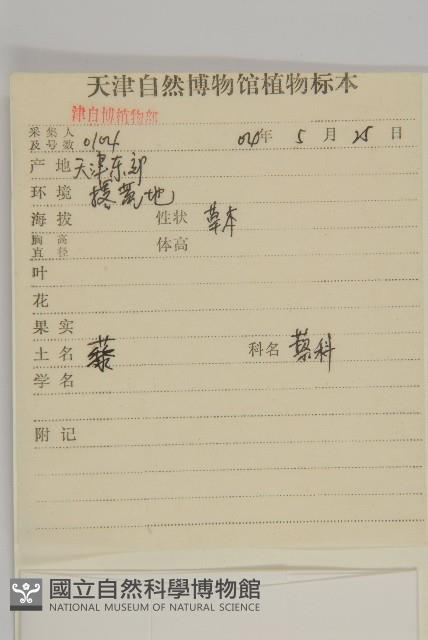 天津自然博物馆植物标本
津自博植物部
采集人及号数 0104 04年 5月 25日
产地 天津东部
环境 撂荒地
海拔 性状 草本
胸高直径 体高
叶
花
果实
土名 藜 科名 藜科
学名
附记
國立自然科學博物館
NATIONAL MUSEUM OF NATURAL SCIENCE